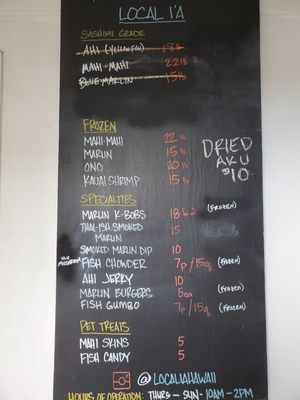 LOCAL I'A
SASHIMI GRADE
AHI (YELLOWFIN) 18 lb
MAHI-MAHI 22 lb
BLUE MARLIN 15 lb
FROZEN
MAHI-MAHI 22 lb
MARLIN 15 lb
ONO 20 lb
KAUAI SHRIMP 15 lb
DRIED
AKU
$10
SPECIALTIES
MARLIN K-BOBS 18 for 2 (FROZEN)
THAI-ISH SMOKED
MARLIN 15
SMOKED MARLIN DIP 10
FISH CHOWDER 7p/15q (FROZEN)
AHI JERKY 10
MARLIN BURGERS 5ea (FROZEN)
FISH GUMBO 7p/15q (FROZEN)
PET TREATS
MAHI SKINS 5
FISH CANDY 5
@LOCALIAHAWAII
HOURS OF OPERATION: THURS - SUN - 10AM - 2PM